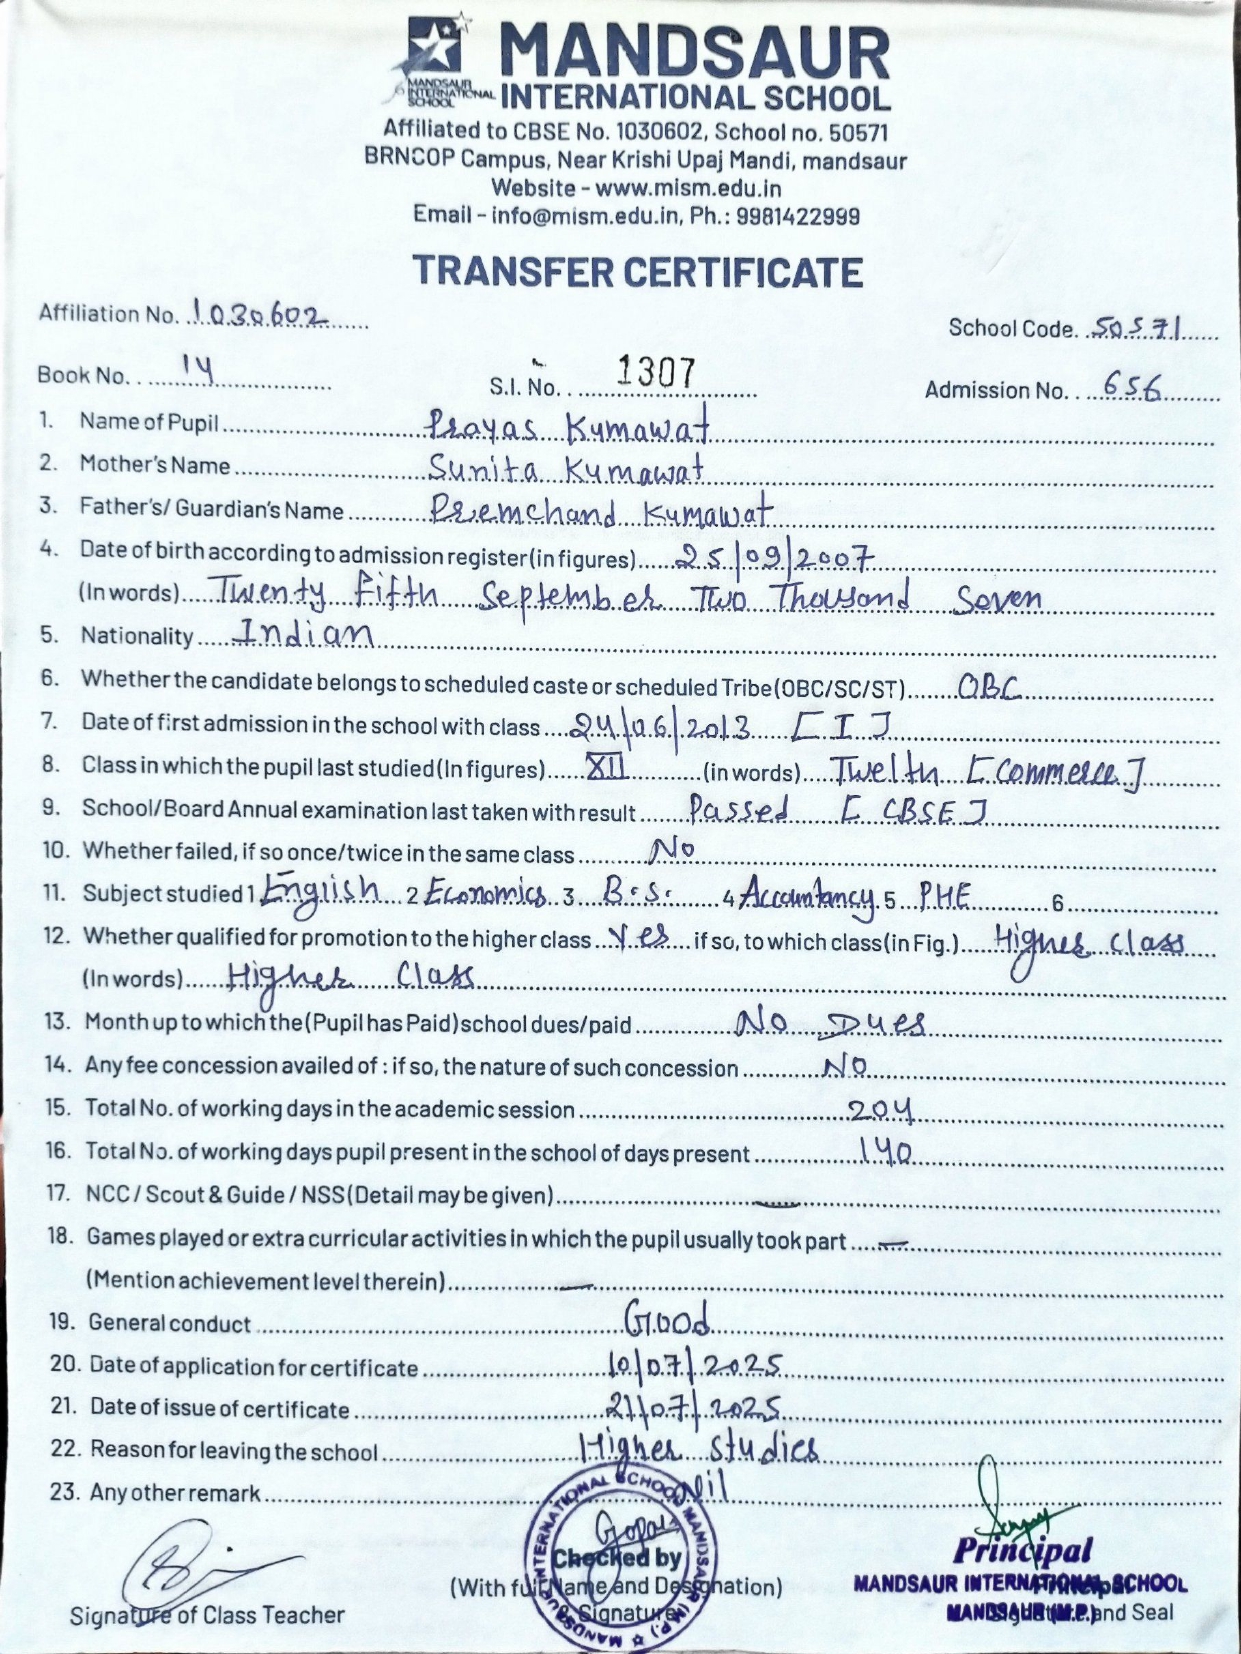 MANDSAUR
INTERNATIONAL SCHOOL
MANDSAUR
INTERNATIONAL
SCHOOL
Affiliated to CBSE No. 1030602, School no. 50571
BRNCOP Campus, Near Krishi Upaj Mandi, mandsaur
Website - www.mism.edu.in
Email - info@mism.edu.in, Ph.: 9981422999
TRANSFER CERTIFICATE
Affiliation No. 1030602
School Code. 50571
Book No. 14 S.I. No. 1307 Admission No. 656
1. Name of Pupil Prayas Kumawat
2. Mother's Name Sunita Kumawat
3. Father's/ Guardian's Name Premchand Kumawat
4. Date of birth according to admission register(in figures) 25/09/2007
(In words) Twenty Fifth September Two Thousand Seven
5. Nationality Indian
6. Whether the candidate belongs to scheduled caste or scheduled Tribe(OBC/SC/ST) OBC
7. Date of first admission in the school with class 24/06/2013 [I]
8. Class in which the pupil last studied(In figures) XII (in words) Twelth [Commerce]
9. School/Board Annual examination last taken with result Passed [CBSE]
10. Whether failed, if so once/twice in the same class No
11. Subject studied 1 English 2 Economics 3 B.S. 4 Accountancy 5 PHE 6
12. Whether qualified for promotion to the higher class Yes if so, to which class(in Fig.) Higher Class
(In words) Higher Class
13. Month up to which the(Pupil has Paid)school dues/paid No Dues
14. Any fee concession availed of : if so, the nature of such concession NO
15. Total No. of working days in the academic session 204
16. Total No. of working days pupil present in the school of days present 140
17. NCC / Scout & Guide / NSS(Detail may be given) —
18. Games played or extra curricular activities in which the pupil usually took part —
(Mention achievement level therein) —
19. General conduct Good
20. Date of application for certificate 10/07/2025
21. Date of issue of certificate 21/07/2025
22. Reason for leaving the school Higher studies
23. Any other remark Nil
MANDSAUR INTERNATIONAL SCHOOL MANDSAUR (M.P.)
Gopal
Checked by
(With full Name and Designation)
& Signature
Signature of Class Teacher
Principal
MANDSAUR INTERNATIONAL SCHOOL
MANDSAUR (M.P.)
Principal
Signature and Seal